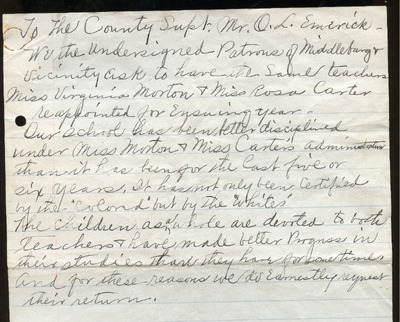 To The County Supt. Mr. O.L. Emerick -
We the Undersigned Patrons of Middleburg &
Vicinity ask to have the Same teachers
Miss Virginia Morton & Miss Rosa Carter
reappointed for Ensuing year -
Our School has been better disciplined
under (Miss Morton & Miss Carter's administration
than it has being for the Last five or
six years. It has not only been Certified
by the "Colord" but by the "Whites"
The Children as a whole are devoted to both
teachers & have made better Progress in
their studies than they have for sometimes
and for these reasons we do Earnestly request
their return.